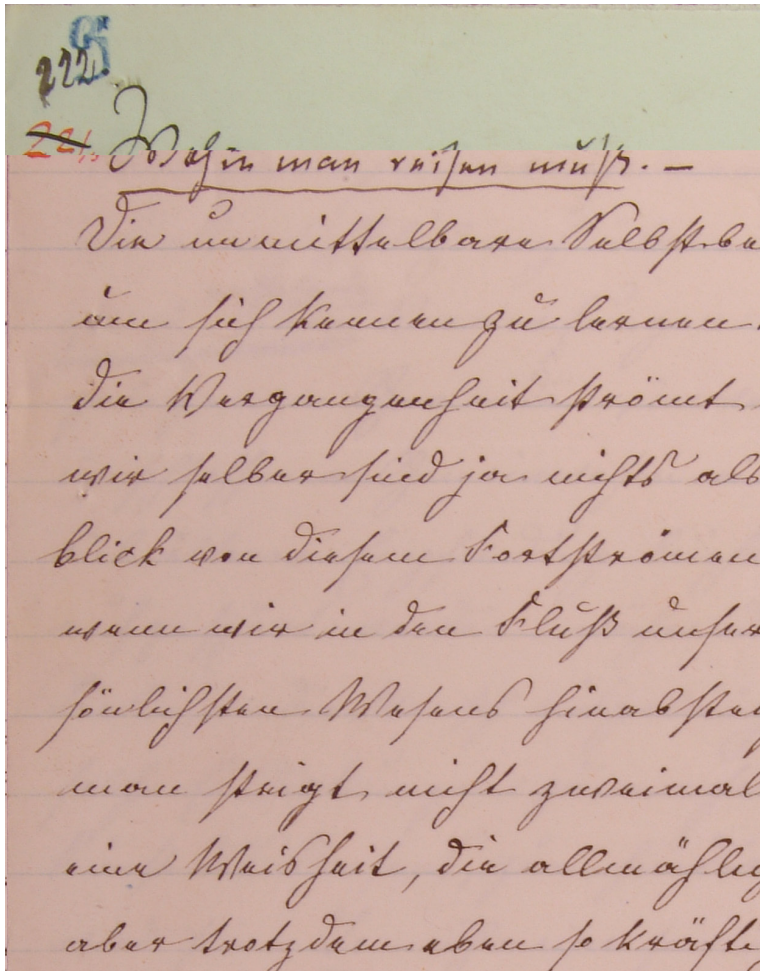 222.
221.
Wohin man reisen muß. —
Die unmittelbare Selbstbe
um sich kennen zu lernen
die Vergangenheit strömt
wir selber sind ja nichts als
blick von diesem Fortströmen
wenn wir in den Fluß unser
sönlichsten Wesens hinabstei
man steigt nicht zweimal
eine Weisheit, die allmählig
aber trotzdem eben so kräfti